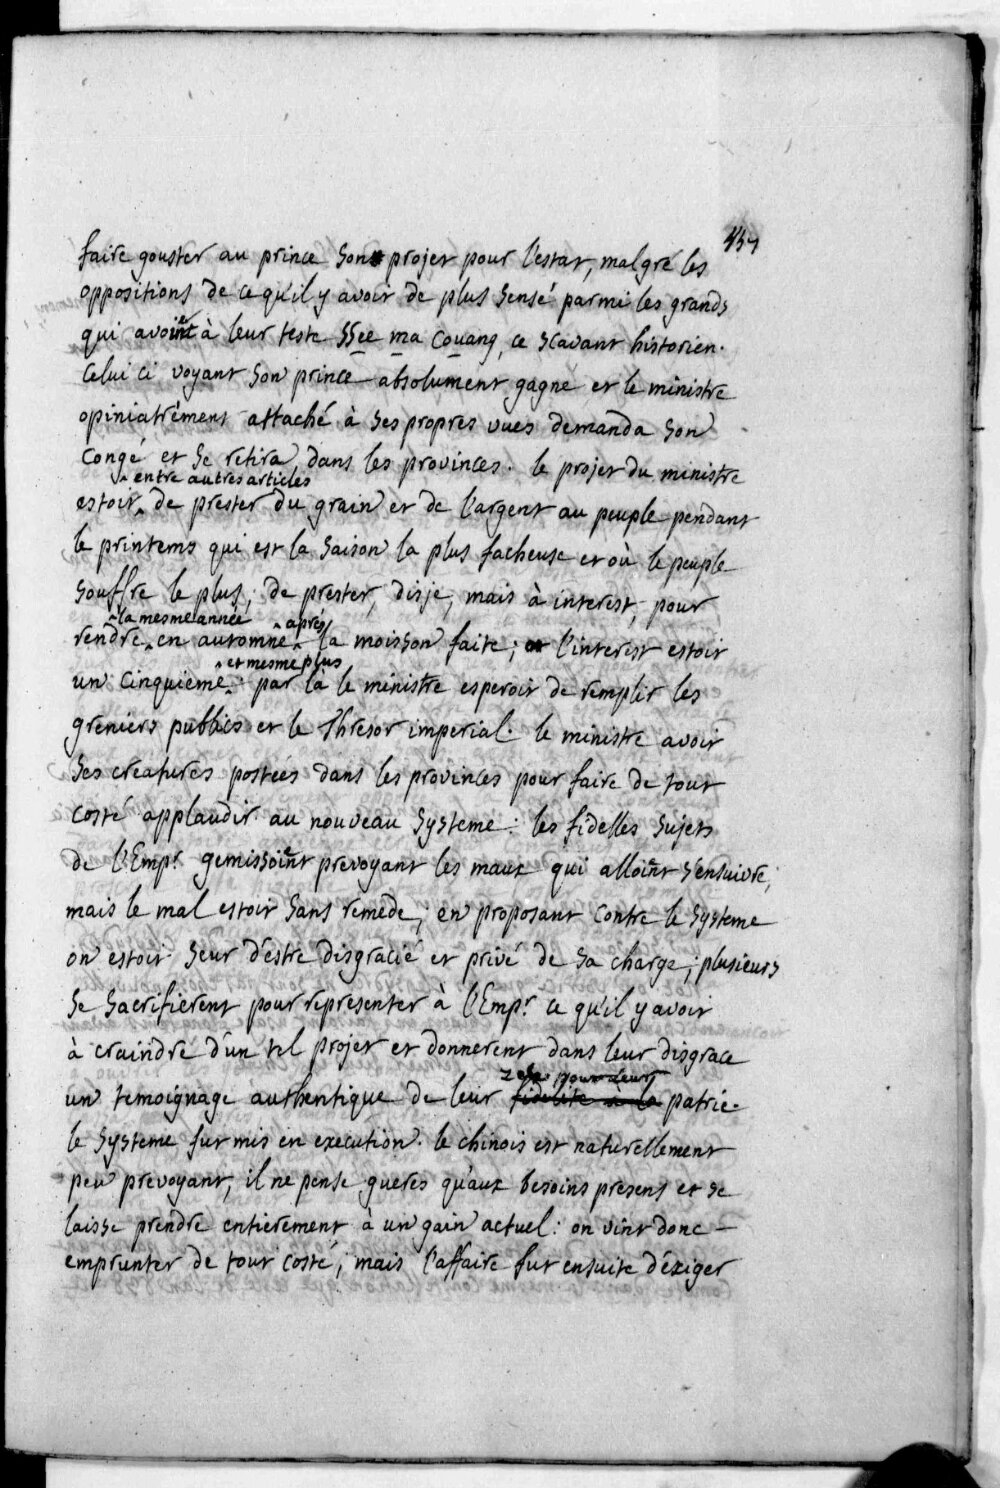 457
faire gouster au prince son projet pour l'estat, malgré les
oppositions de ce qu'il y avoit de plus sensé parmi les grands
qui avoient à leur teste ssee ma couang, ce scavant historien.
celui ci voyant son prince absolument gagné et le ministre
opiniatrément attaché à ses propres vues demanda son
congé et se retira dans les provinces. le projet du ministre
^ entre autres articles
estoit ^ de prester du grain et de l'argent au peuple pendant
le printems qui est la saison la plus facheuse et où le peuple
souffre le plus; de prester, disje, mais à interest, pour
^ la mesme année ^ aprés
rendre ^ en automne ^ la moisson faite; l'interest estoit
^ et mesme plus
un cinquième ^. par là le ministre esperoit de remplir les
greniers publics et le Thresor imperial. le ministre avoit
ses créatures postées dans les provinces pour faire de tout
costé applaudir au nouveau systeme: les fidelles sujets
de l'Empr. gemissoient prevoyant les maux qui alloient s'ensuivre;
mais le mal estoit sans remède; en proposant contre le systeme
on estoit seur d'estre disgracié et privé de sa charge; plusieurs
se sacrifièrent pour representer à l'Empr. ce qu'il y avoit
à craindre d'un tel projet et donnerent dans leur disgrace
zele pour leur
un temoignage authentique de leur fidelité à la patrie.
le systeme fut mis en execution. le chinois est naturellement
peu prevoyant, il ne pense gueres qu'aux besoins presens et se
laisse prendre entièrement à un gain actuel: on vint donc –
emprunter de tout costé; mais l'affaire fut ensuite d'éxiger